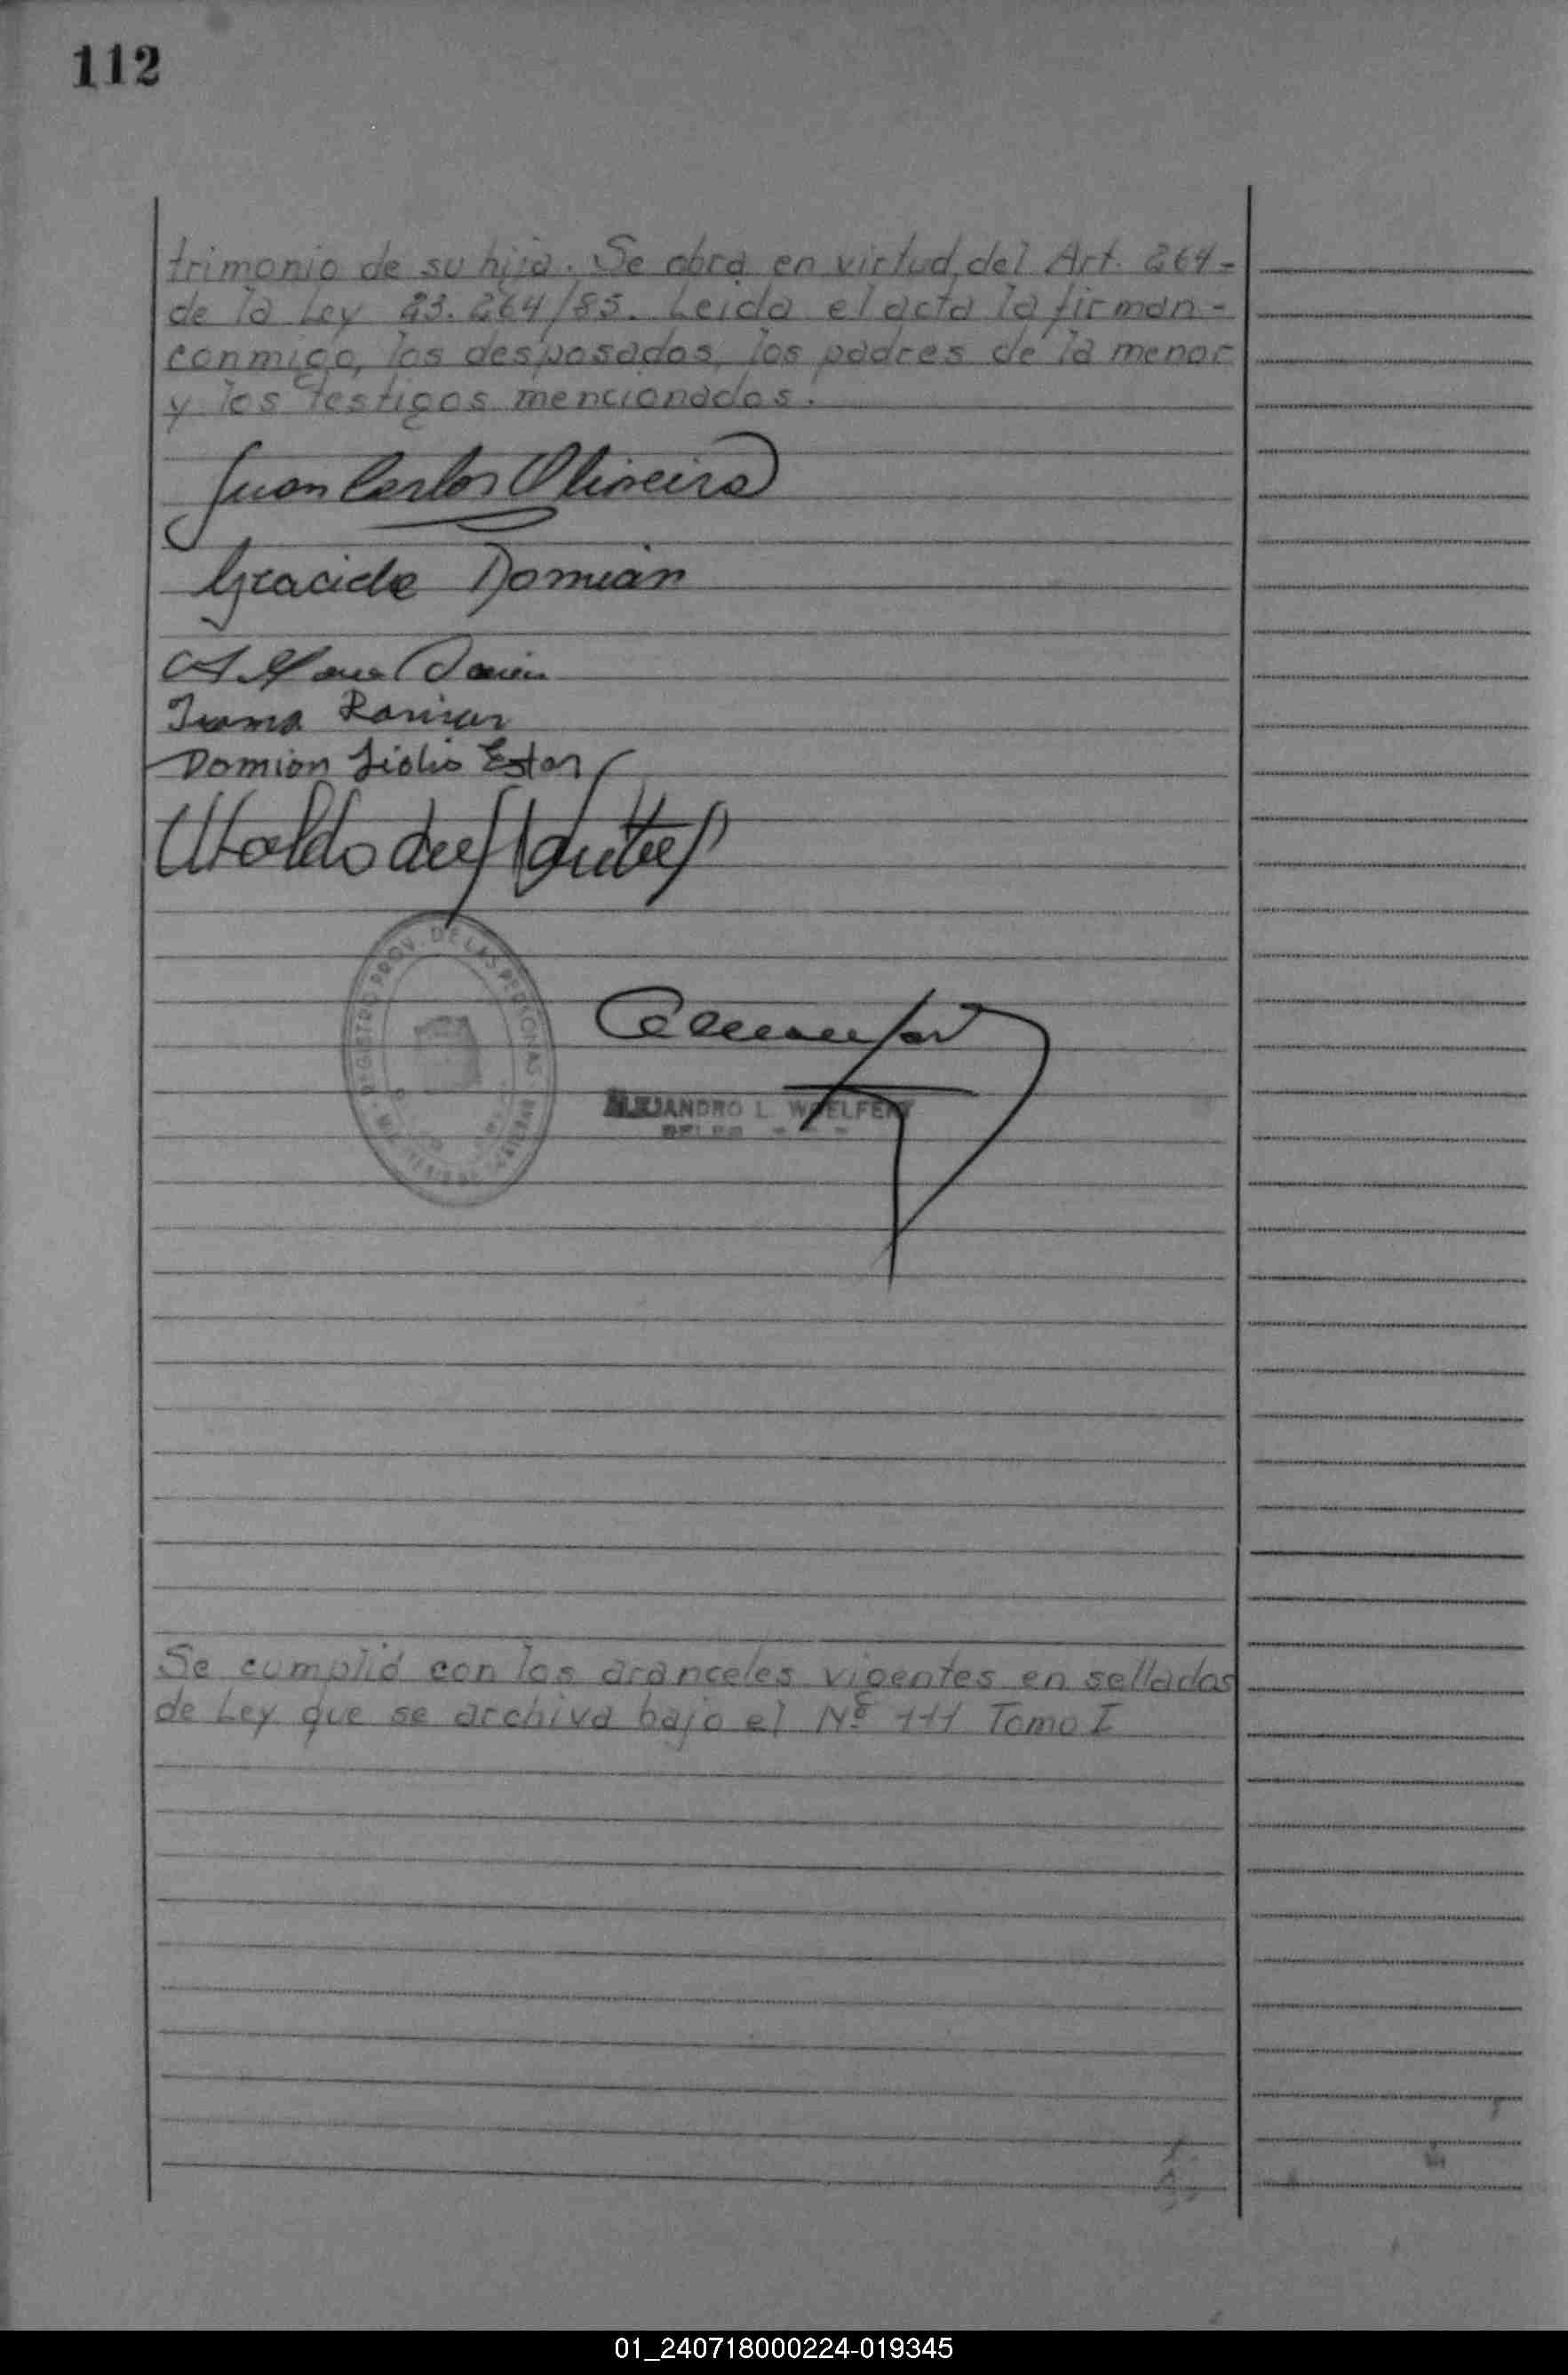 112
trimonio de su hija. Se obra en virtud del Art. 264-
de la Ley 23.264/85. Leida el acta la firman-
conmigo, los desposados, los padres de la menor
y los testigos mencionados.
Juan Carlos Oliveira
Graciela Damian
Damian Lidio Ester
Ubaldo
REGISTRO PROV. DE LAS PERSONAS
ALEJANDRO L. WOELFERT
Se cumplió con los aranceles vigentes en sellados
de Ley que se archiva bajo el Nº 111 Tomo I
01_240718000224-019345